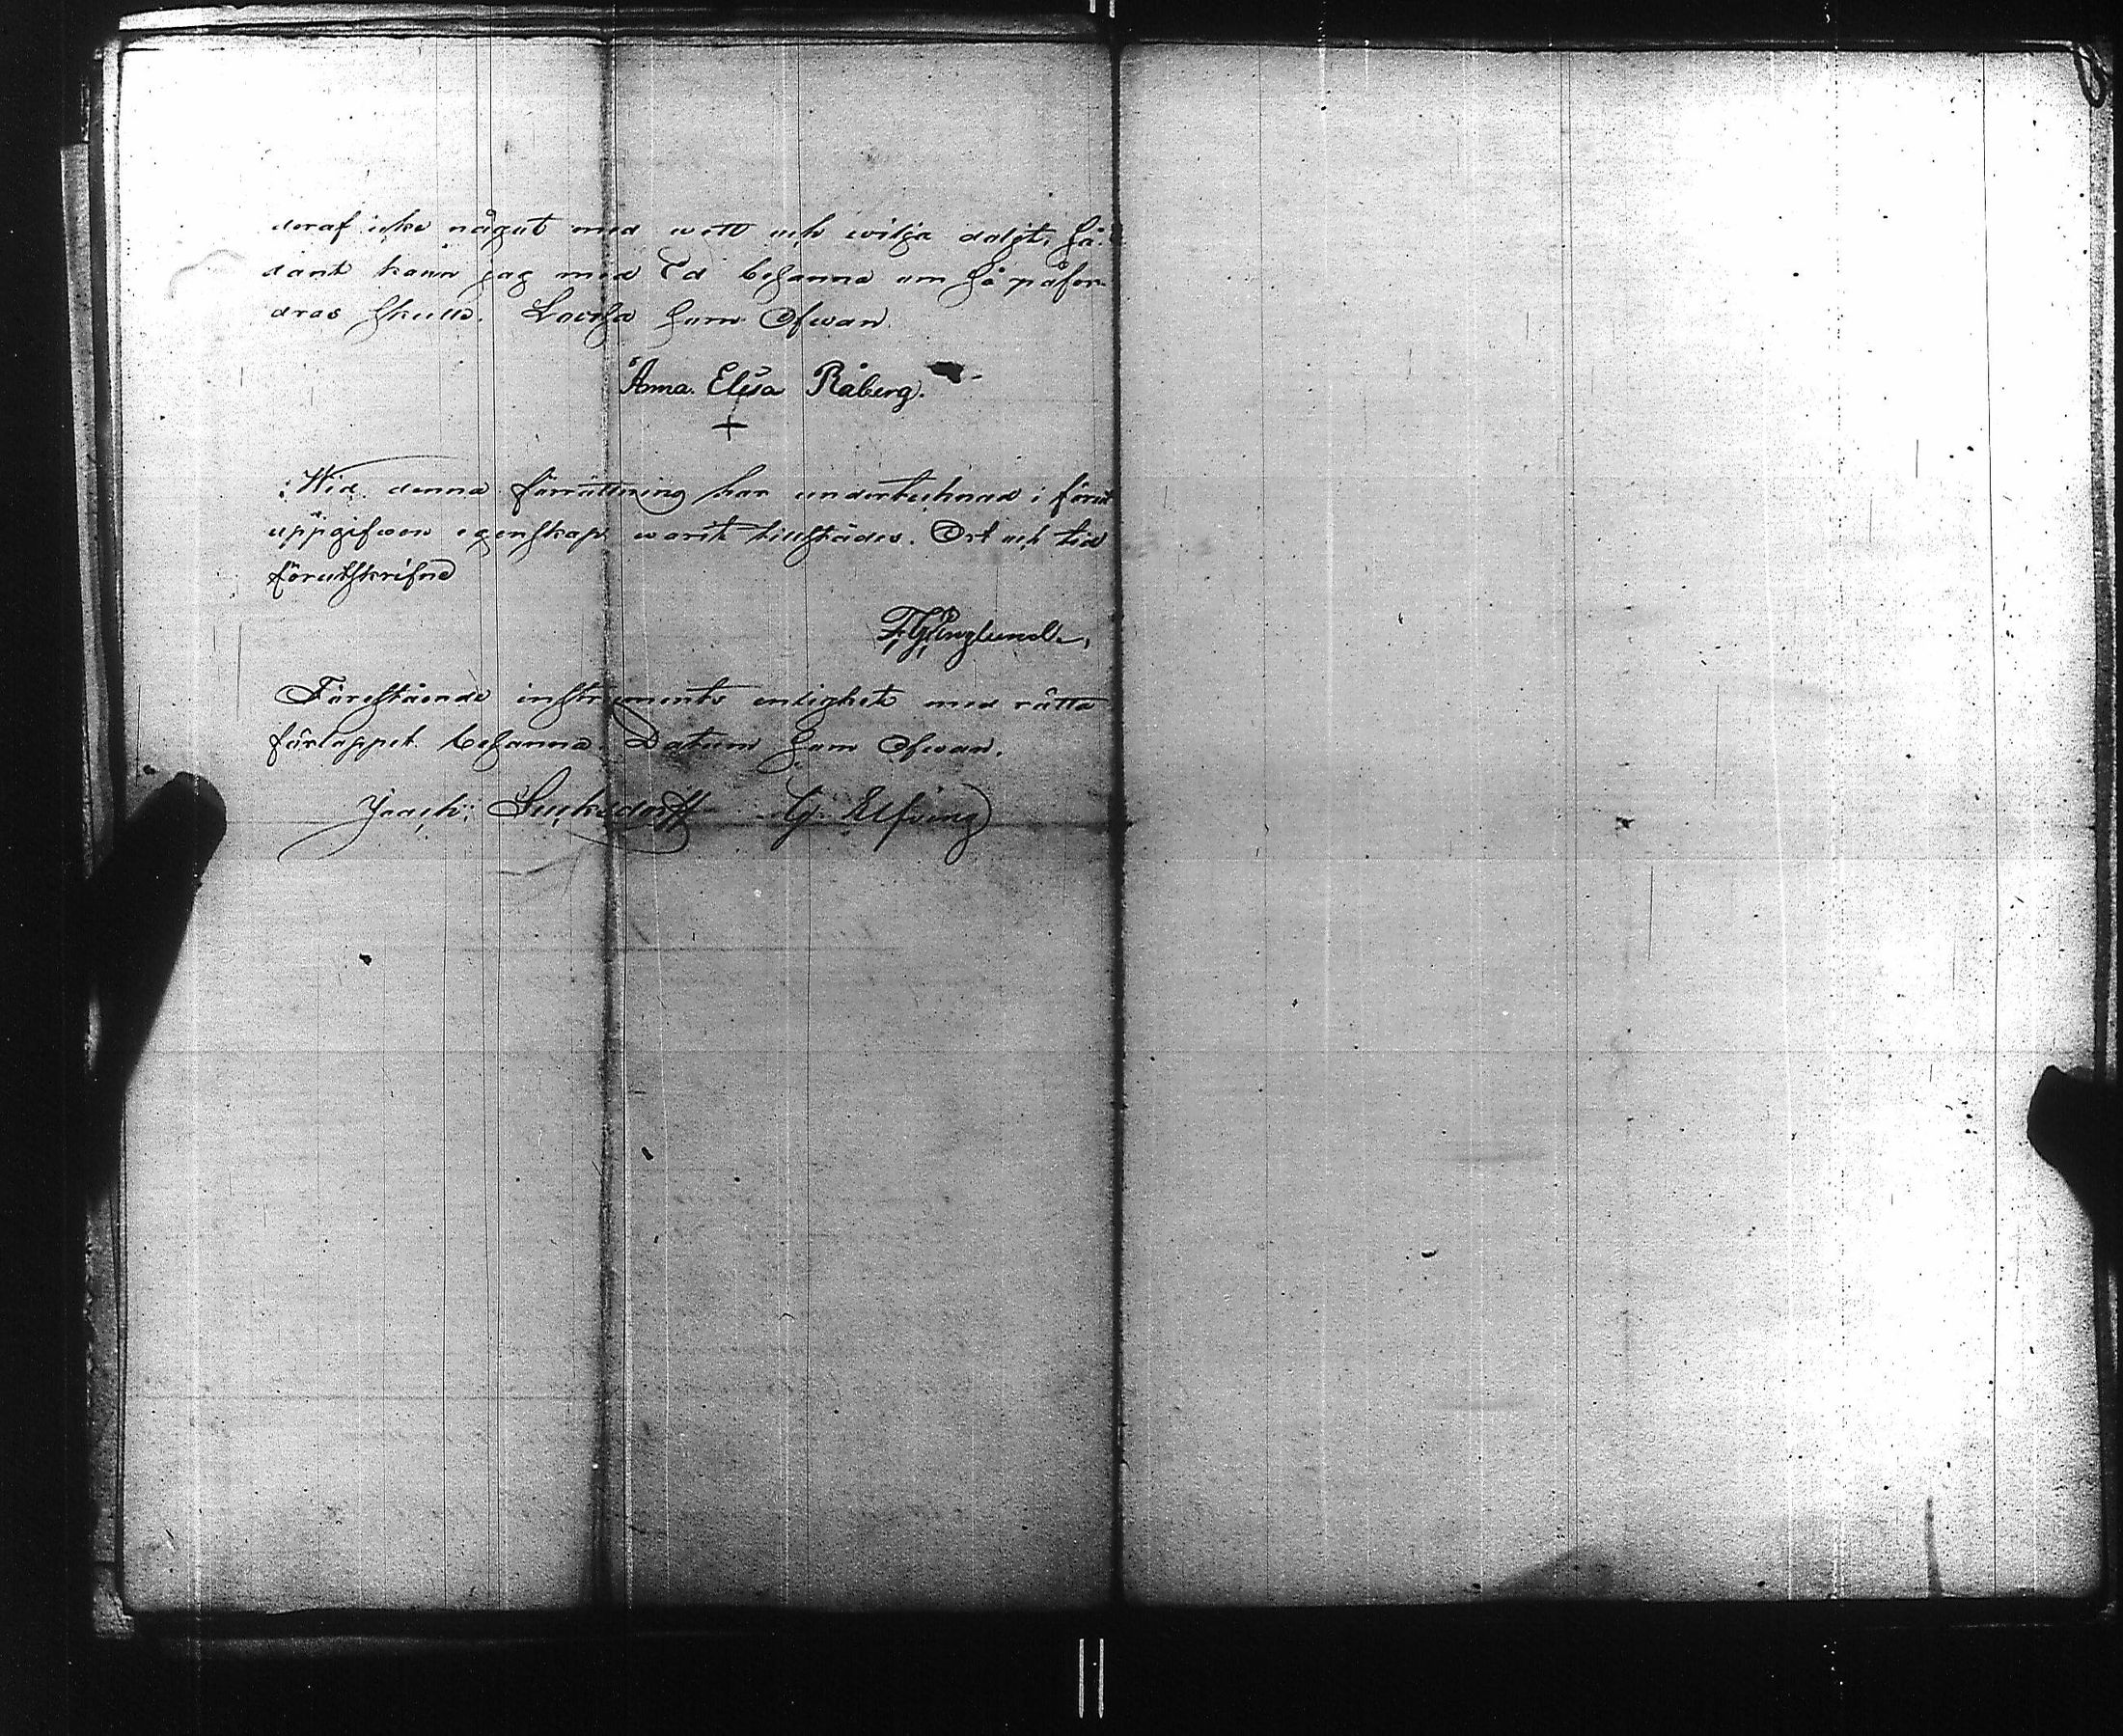 deraf icke något med wett och wilja döljt, så-
dant kann jag med Ed besanna om så påfor-
dras skulle. Lovisa som Ofwan.
Anna Elisa Råberg.
+
Wid denna förrättning har undertecknad i förut
uppgifwen egenskap warit tillstädes. Ort och tid
förutskrifne
F, G, Englund.
Förestående instruments enlighet med rätta
förloppet besanna. Datum som Ofwan.
Joach: Sucksdorff G. Elfving